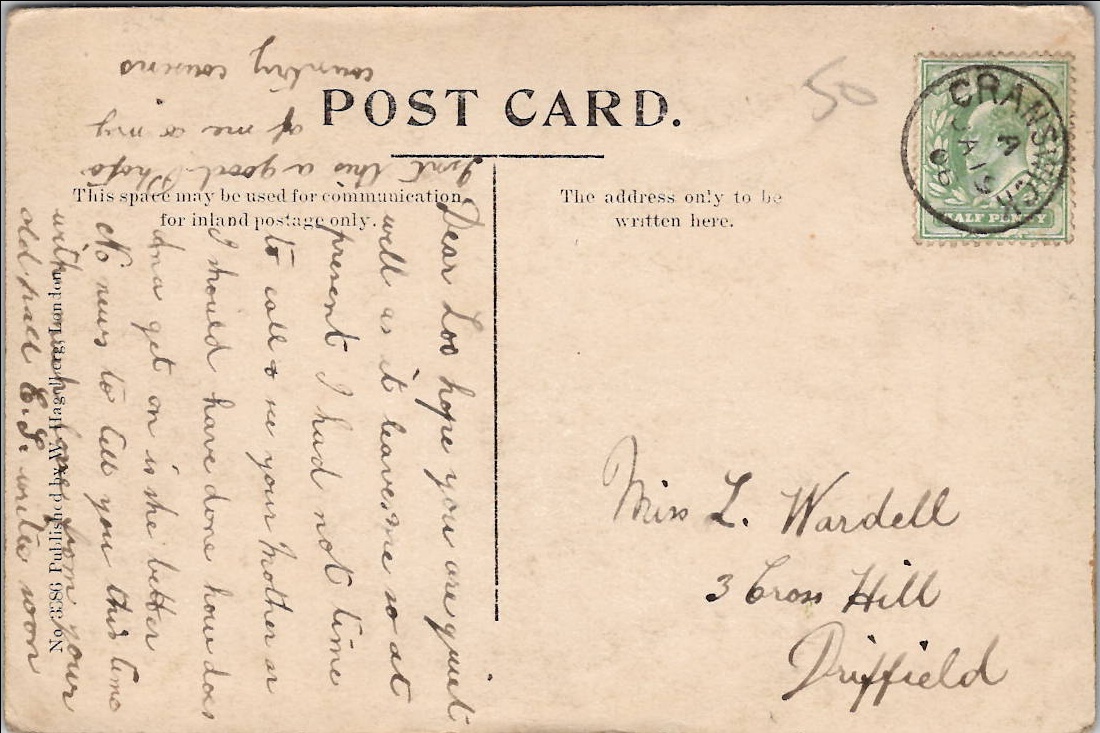 POST CARD.
This space may be used for communication
for inland postage only.
The address only to be
written here.
CRANSWICK
A
JA 19
06
HALF PENNY
50
Miss L. Wardell
3 Cross Hill
Driffield
Dear Loo hope you are quiet
well as it leaves me so at
present I had not time
to call & see your Mother or
I should have done how does
Ana get on is she better
No news to tell you this time
with much love from your
old pall E.S. write soon
Isnt this a good Photo
of me & my
country cousens
No 3386 Published by W. Hagelberg, London